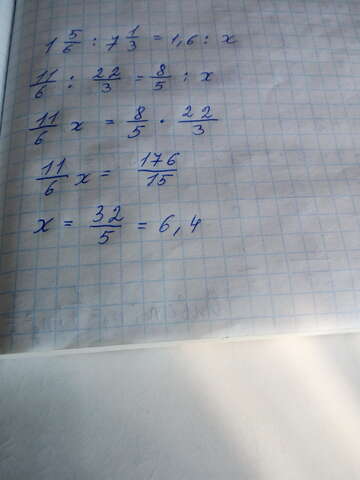 1 5/6 : 7 1/3 = 1,6 : x
11/6 : 22/3 = 8/5 : x
11/6 x = 8/5 · 22/3
11/6 x = 176/15
x = 32/5 = 6,4